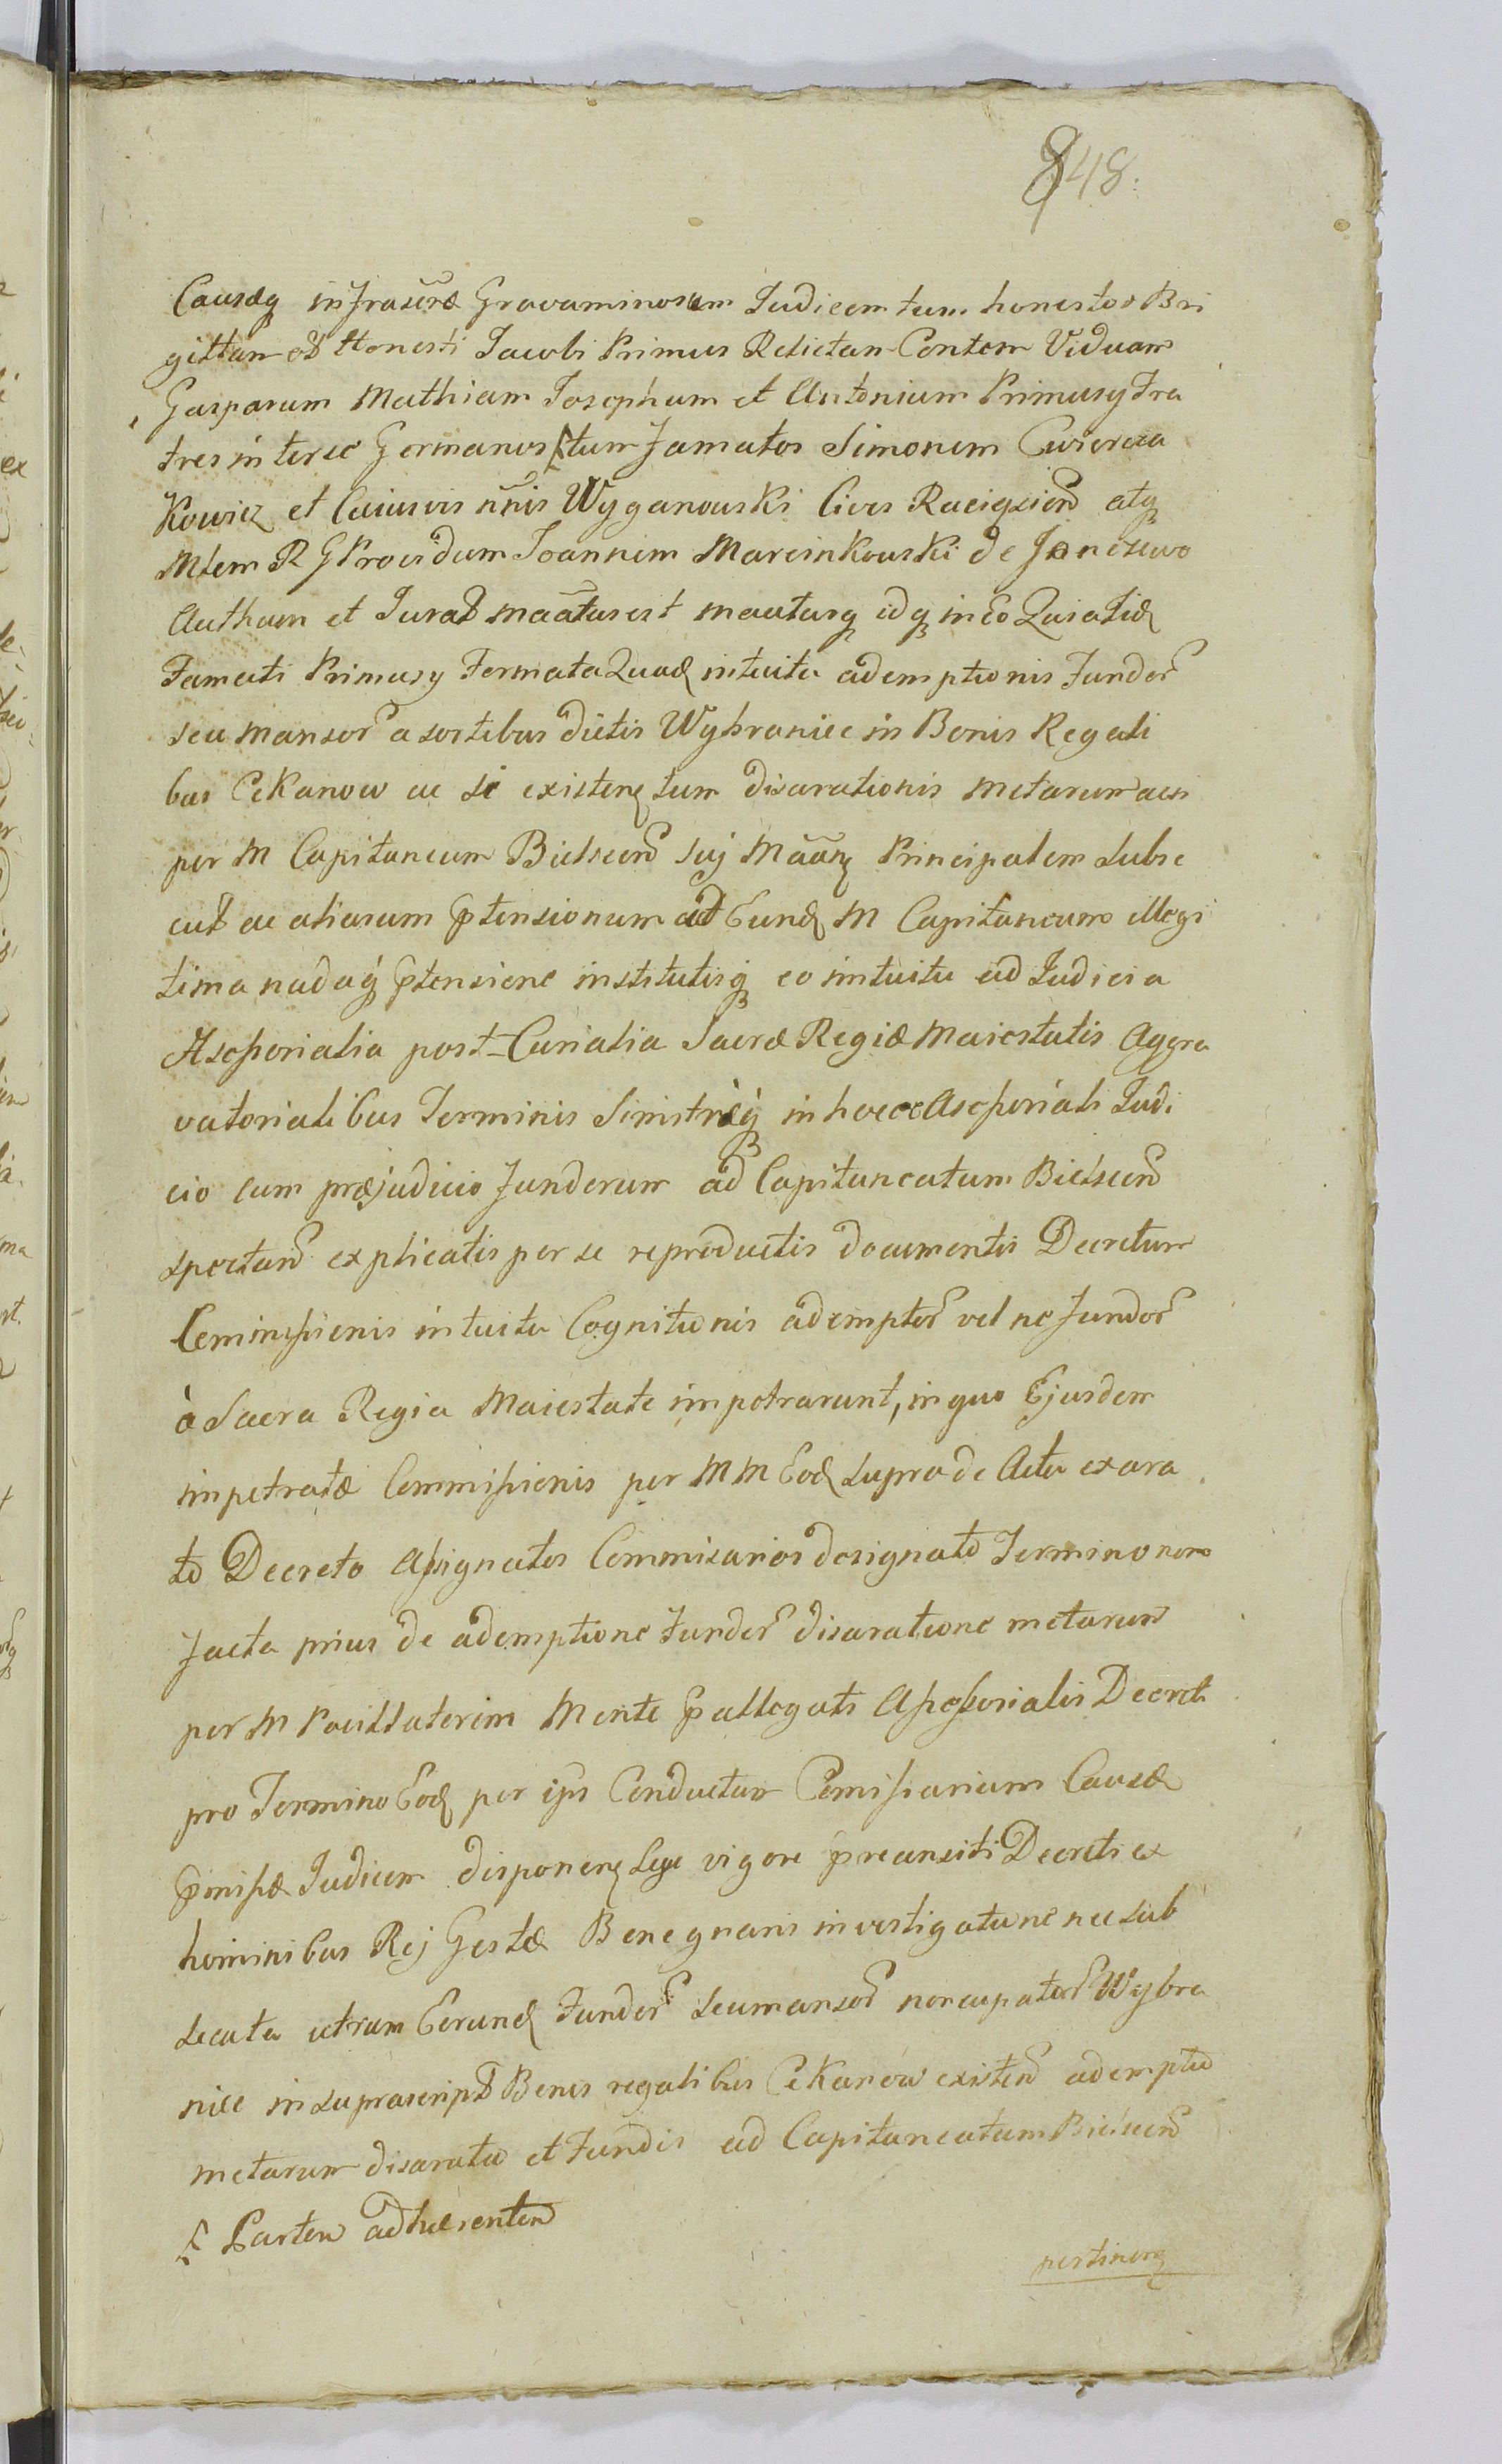 848.
Causæq infrascræ Gravaminosem Judicem tum honestos Bri
gittam olt Honesti Jacobi Primus Relictan Contem Viduam
Gasparum Mathiam Josephum et Antonium Primusy Fra
tres interse Germanos tum famatos Simonem Cwiercza
Kowicz et Cuiusvis nnis Wyganowski Cives Raciązien atq
Mtem R G Providum Joannem Marcinkowski de Janczewo
Authum et Jurat maatus est mautusq idq in Eo Quia Iid
Famati Primusy Fermata Quad intuitu ademptionis Fundor
seu mansor a sortibus dictis Wybraniec in Bonis Regali
bus Cekanow ac si existen tum disarationis metarum aen
per M Capitaneum Bielscen sui Maan Principalem subse
cut ac aliarum ptensionum ad Eund M Capitaneum illegi
tima nudaq ptensione institutisq eo intuitu ad Judicia
Assessorialia post-Curialia Sacræ Regiæ Maiestatis Aggra
vatorialibus Terminis Sinistræq in hocce Assessoriali Judi
cio cum præjudicio fundorum ad Capitaneatum Bielscen
spectan explicatis per se reproductis documentis Decretum
Comimssionis intuitu Cognitionis ademptor vel ne fundor
à Sacra Regia Maiestate impetrarunt, in quo Ejusdem
impetratæ Commissionis per MM Eod supra de Actu exara
to Decreto Assignatos Commisarios designato Termino non
facta prius de ademptione Fundor disaratione metarum
per M Pocillatorem Mente pallegati Assessorialis Decreti
pro Termino Eod per ips Conductum Comissarium Causæ
pmissæ Judicem disponen Lege vigore precusiti Decreti ex
hominibus Rej Gestæ Bene gnaris investigatione nec sub
secuta utrum Eorund Fundor seu mansor noncupator Wybra
niec in suprascript Bonis regalibus Cekanow existen ademptio
metarum disaratio et Fundis ad Capitaneatum Bielscen
Parten adhærenten
pertinen